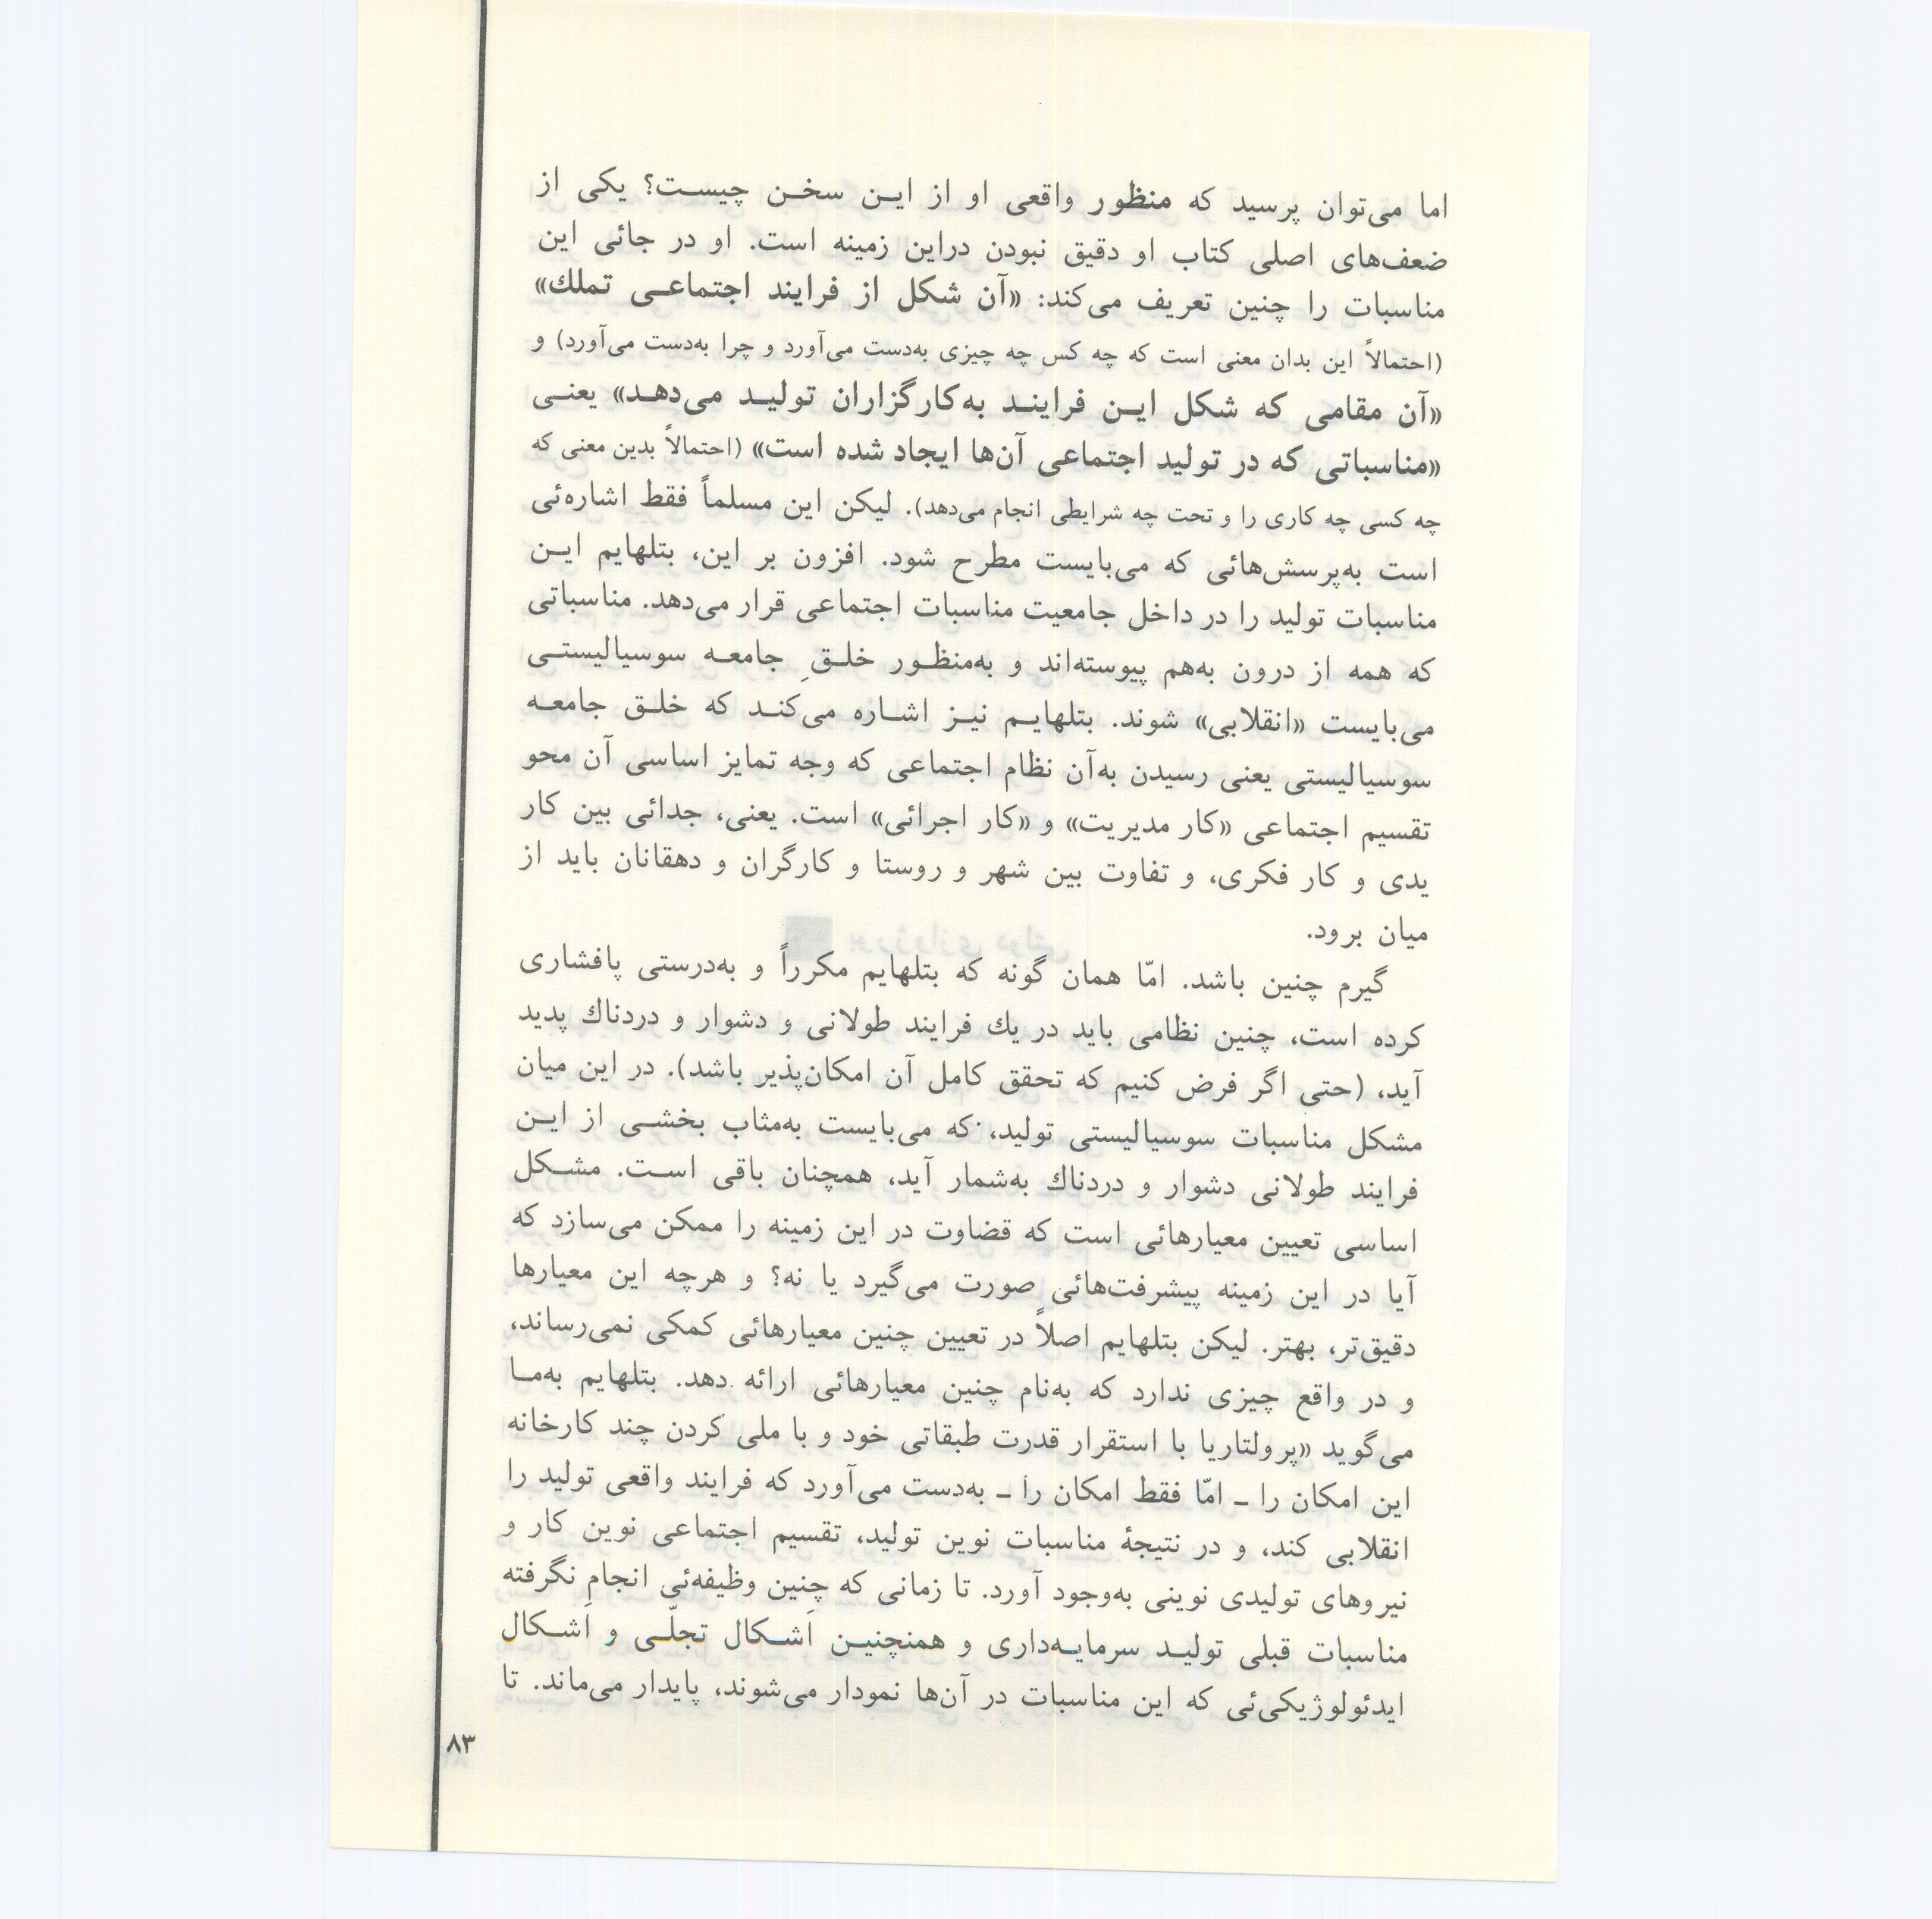 اما می‌توان پرسید که منظور واقعی او از ایـن سخـن چیسـت؟ یکی از
ضعف‌های اصلی کتاب او دقیق نبودن دراین زمینه است. او در جائی این
مناسبات را چنین تعریف می‌کند: «آن شکل از فرایند اجتماعـی تملك»
(احتمالاً این بدان معنی است که چه کس چه چیزی به‌دست می‌آورد و چرا به‌دست می‌آورد) و
«آن مقامی که شکل ایـن فراینـد به‌کارگزاران تولیـد می‌دهـد» یعنـی
«مناسباتی که در تولید اجتماعی آن‌ها ایجاد شده است» (احتمالاً بدین معنی که
چه کسی چه کاری را و تحت چه شرایطی انجام می‌دهد). لیکن این مسلماً فقط اشاره‌ئی
است به‌پرسش‌هائی که می‌بایست مطرح شود. افزون بر این، بتلهایم ایـن
مناسبات تولید را در داخل جامعیت مناسبات اجتماعی قرار می‌دهد. مناسباتی
که همه از درون به‌هم پیوسته‌اند و به‌منظـور خلـقِ جامعـه سوسیالیستـی
می‌بایست «انقلابی» شوند. بتلهایـم نیـز اشـاره می‌کنـد که خلـق جامعـه
سوسیالیستی یعنی رسیدن به‌آن نظام اجتماعی که وجه تمایز اساسی آن محو
تقسیم اجتماعی «کار مدیریت» و «کار اجرائی» است. یعنی، جدائی بین کار
یدی و کار فکری، و تفاوت بین شهر و روستا و کارگران و دهقانان باید از
میان برود.
گیرم چنین باشد. امّا همان گونه که بتلهایم مکرراً و به‌درستی پافشاری
کرده است، چنین نظامی باید در یك فرایند طولانی و دشوار و دردناك پدید
آید، (حتی اگر فرض کنیم که تحقق کامل آن امکان‌پذیر باشد). در این میان
مشکل مناسبات سوسیالیستی تولید، که می‌بایست به‌مثاب بخشـی از ایـن
فرایند طولانی دشوار و دردناك به‌شمار آید، همچنان باقی اسـت. مشـکل
اساسی تعیین معیارهائی است که قضاوت در این زمینه را ممکن می‌سازد که
آیا در این زمینه پیشرفت‌هائی صورت می‌گیرد یا نه؟ و هرچه این معیارها
دقیق‌تر، بهتر. لیکن بتلهایم اصلاً در تعیین چنین معیارهائی کمکی نمی‌رساند،
و در واقع چیزی ندارد که به‌نام چنین معیارهائی ارائه دهد. بتلهایم به‌مـا
می‌گوید «پرولتاریا با استقرار قدرت طبقاتی خود و با ملی کردن چند کارخانه
این امکان را ـ امّا فقط امکان را ـ به‌دست می‌آورد که فرایند واقعی تولید را
انقلابی کند، و در نتیجهٔ مناسبات نوین تولید، تقسیم اجتماعی نوین کار و
نیروهای تولیدی نوینی به‌وجود آورد. تا زمانی که چنین وظیفه‌ئی انجامِ نگرفته
مناسبات قبلی تولیـد سرمایـه‌داری و همنچنیـن اَشـکال تجلّـی و اَشـکال
ایدئولوژیکی‌ئی که این مناسبات در آن‌ها نمودار می‌شوند، پایدار می‌ماند. تا
۸۳